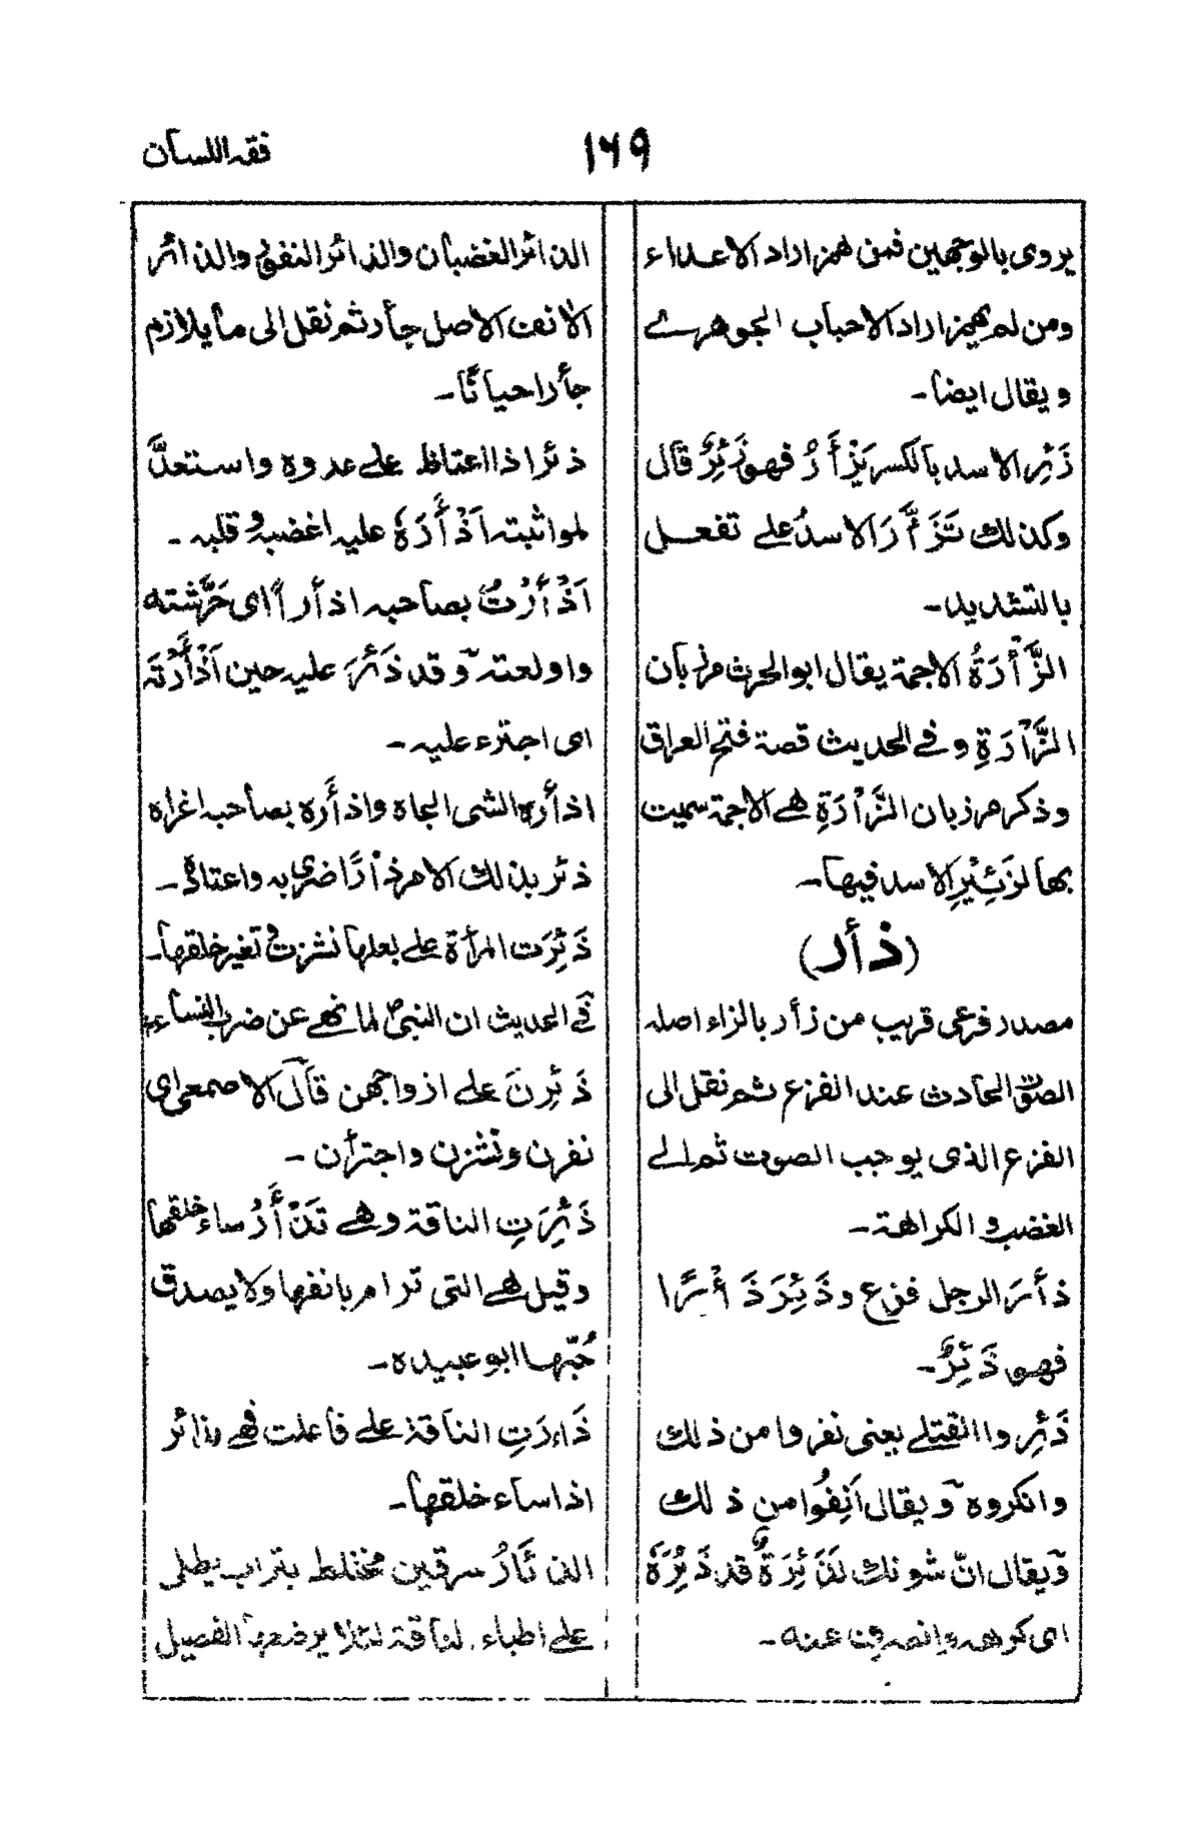 فقہ اللسان
١٦٩
يروى بالوجهين فمن همز اراد الاعداء
ومن لم يهمز اراد الاحباب الجوهرے
ويقال ايضا۔
زَئِر الاسد بالكسر يَزْأَرُ فهو زَئِرٌ قال
وكذلك تَزَأَّرَ الاسدُ علے تفعل
بالتشديد۔
الزَّأْرَةُ الاجمة يقال ابو الحرث مرزبان
الزَّأرَةِ وفے الحديث قصة فتح العراق
وذكر مرزبان الزَّأرَةِ هے الاجمة سميت
بها لزَئِيْرِ الاسد فيها۔
(ذأر)
مصدر فرعى قريب من زأر بالزاء اصله
الصوت الحادث عند الفزع ثم نقل الى
الفزع الذى يوجب الصوت ثم الے
الغضب و الكراهة۔
ذأَرَ الرجل فزع وذَئِرَ ذَأَرًا
فهو ذَئِرٌ۔
ذَئِروا القتلے يعنى نفروا من ذلك
وانكروه ويقال اَنِفُوا من ذلك
ويقال انّ شونك لَذَئِرَةٌ قد ذَئِرَهٗ
اى كرهه وانصرف عنه۔
الذائر الغضبان والذائر النفور والذائر
الانف الاصل جأر ثم نقل الى ما يلازم
جأرا حيانًا۔
ذئر اذا اغتاظ علے عدوه واستعدَّ
لمواثبته اَذْأَرَهٗ عليه اغضبه و قلبه۔
اَذْأَرْتُ بصاحبه اذأراً اى حَرَّشته
واولعته وقد ذَئِرَ عليه حين اَذْأَرْتَه
اى اجترء عليه۔
اذأره الشى الجاه واذأَره بصاحبه اغراه
ذئر بذلك الامر ذأرًا ضرى به واعتاده۔
ذَئِرَت المرأة علے بعلها نشزت و تغير خلقها۔
فے الحديث ان النبىؐ لما نهے عن ضرب النساء
ذَئِرنَ علے ازواجهن قال الاصمعى اى
نفرن ونشزن واجترأن۔
ذَئِرَتِ الناقة وهے تَذْأَرُ ساء خلقها
وقيل هے التى ترام بانفها ولا يصدق
حُبّها ابو عبيده۔
ذَاءرَتِ الناقة علے فاعلت فهے مذائر
اذا ساء خلقها۔
الذِئَارُ سرقين مختلط بتراب يطلى
علے اطباء الناقة لئلا يرضعها الفصيل